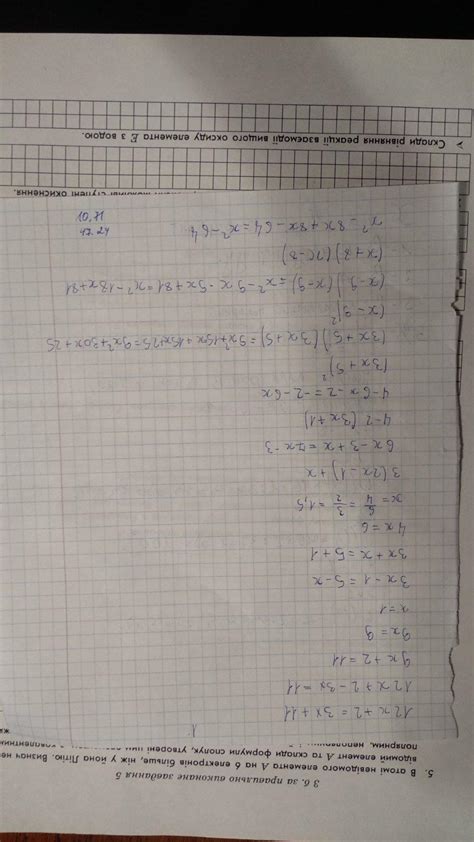 3 б. за правильно виконане завдання 5
5. В атомі невідомого елемента А на 6 електронів більше, ніж у йона Літію. Визнач
відомий елемент А та склади формули сполук, утворених цим
полярним,
1
12x + 2 = 3x + 11
12x + 2 - 3x = 11
9x + 2 = 11
9x = 9
x = 1
3x - 1 = 5 - x
3x + x = 5 + 1
4x = 6
x = 6/4 = 3/2 = 1,5
3(2x - 1) + x
6x - 3 + x = 7x - 3
4 - 2(3x + 1)
4 - 6x - 2 = -2 - 6x
(3x + 5)²
(3x + 5)(3x + 5) = 9x² + 15x + 15x + 25 = 9x² + 30x + 25
(x - 9)²
(x - 9)(x - 9) = x² - 9x - 9x + 81 = x² - 18x + 81
(x + 8)(x - 8)
x² - 8x + 8x - 64 = x² - 64
47.24
10.11
ступені окиснення.
➢ Склади рівняння реакції взаємодії вищого оксиду елемента Е з водою.